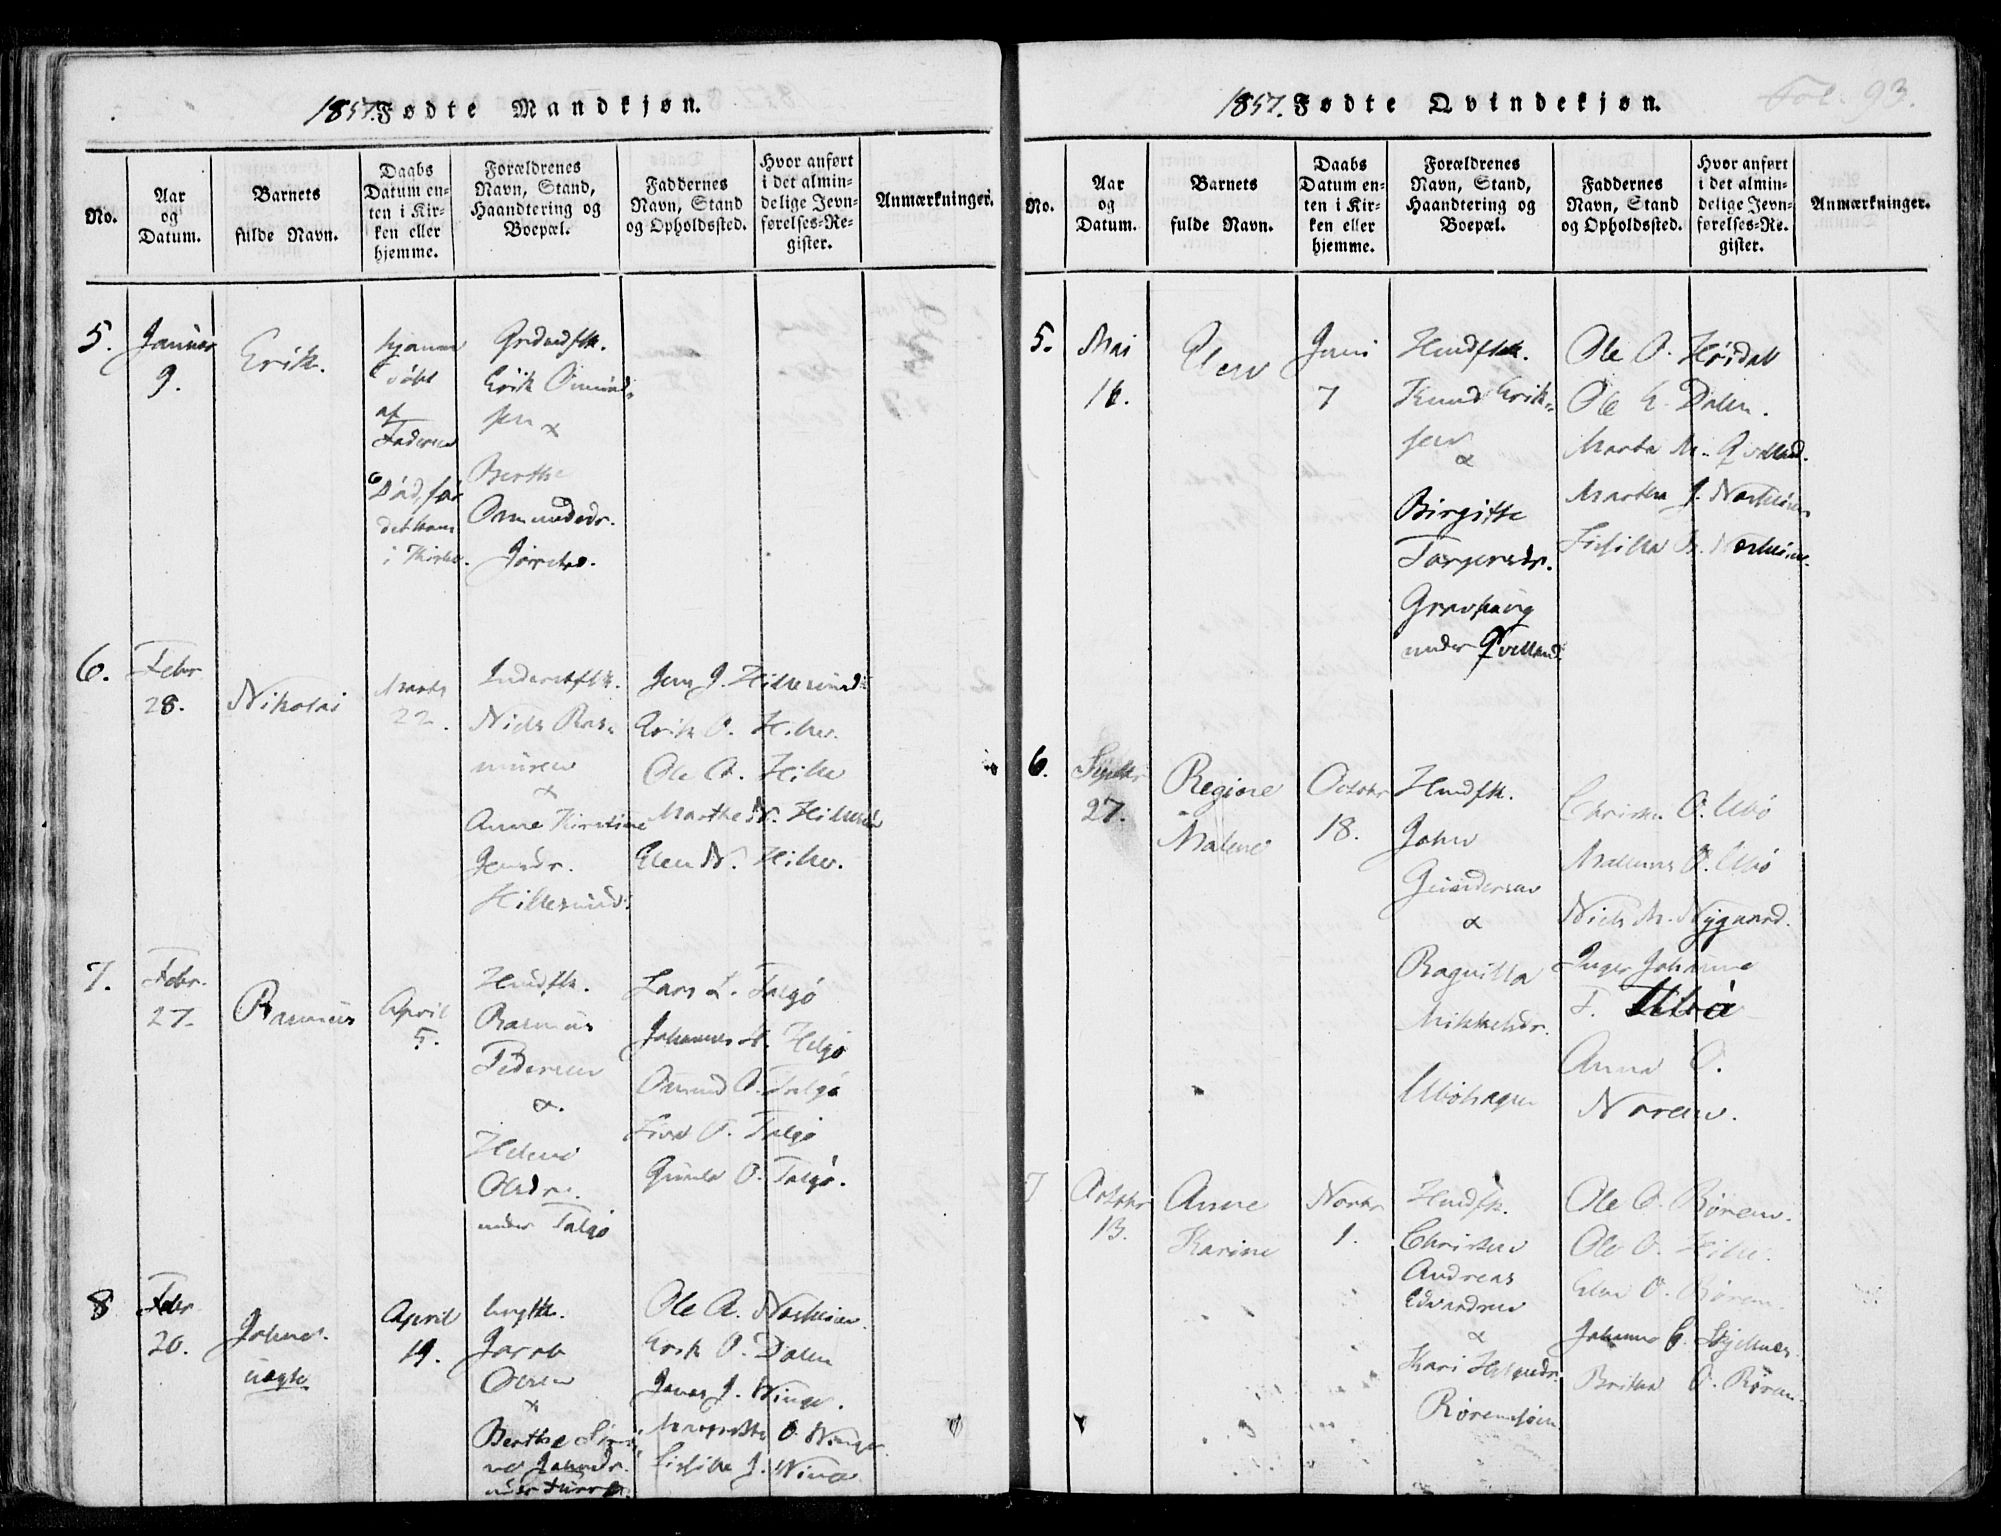 1857. Fødte Mandkjøn.
No.
Aar
og
Datum.
Barnets
fulde Navn.
Daabs
Datum en-
ten i Kir-
ken eller
hjemme.
Forældrenes
Navn, Stand,
Haandtering og
Boepæl.
Faddernes
Navn, Stand
og Opholdssted.
Hvor anført
i det almin-
delige Jevn-
førelses-Re-
gister.
Anmærkninger.
5.
Januar
9.
Erik.
hjemme
døbt
af
Faderen
Død, før
det kom
i Kirke.
Erik Osmund-
sen
&
Berthe
Osmundsdr.
6.
Febr
28.
Nikolai
Marts
22.
Inderstfk.
Niels Ras-
musen
&
Anne Kirstine
Jensdr.
Hillesund.
Jens J. Hillesund
Erik O. Hille.
Ole A. Hille
Marthe N. Hillesund
Elen N. Hille.
7.
Febr.
27.
Rasmus
April
5.
Huusfk.
Rasmus
Pedersen
&.
Helene
Olsdr.
under Talgø
Lars L. Talgø
Johannes A. Helgø
Osmund O. Talgø
Siva O. Talgø
Gunla O. Talgø.
8
Febr
20.
Johne.
uægte
April
19.
Jacob
Olsen
&
Berthe
Johnsdr.
Ole A. Nærheim.
Erik O. Dalen
Jonas J. Winge.
Margrethe O. Winge
Sissille J. Winge
1857. Fødte Qvindekjøn.
Fol. 93.
No.
Aar
og
Datum.
Barnets
fulde Navn.
Daabs
Datum en-
ten i Kir-
ken eller
hjemme.
Forældrenes
Navn, Stand,
Haandtering og
Boepæl.
Faddernes
Navn, Stand
og Opholdssted.
Hvor anført
i det almin-
delige Jevn-
førelses-Re-
gister.
Anmærkninger.
5.
Mai
16.
Elen
Juni
7
Huusfk.
Knud Erik-
sen
&
Birgithe
Torgersdr.
under Qvelland.
Ole O. Høidal
Ole E. Dalen.
Marta M. Qvelland.
Martha J. Nærheim
Sissilla A. Nærheim.
6.
Septbr
27.
Regine
Malene
Octobr
18.
Huusfk.
John
Gundersen
&
Ragnilla
Mikkelsdr.
Ubøhagen
Christen O. Ubø
O. Ubø
Niels M. Nygaard.
Inger Johanne
T. Ubø
Anna O.
Noreen.
7
Octobr
13.
Anne
Karine
Novbr
1.
Huusfk.
Christen
Andreas
Edvardsen
&
Kari Helgesdr.
Ole O. Røren.
Ole O. Hille.
Elen O. Røren.
Johanne C. Skjelnes
Britha O. Røren